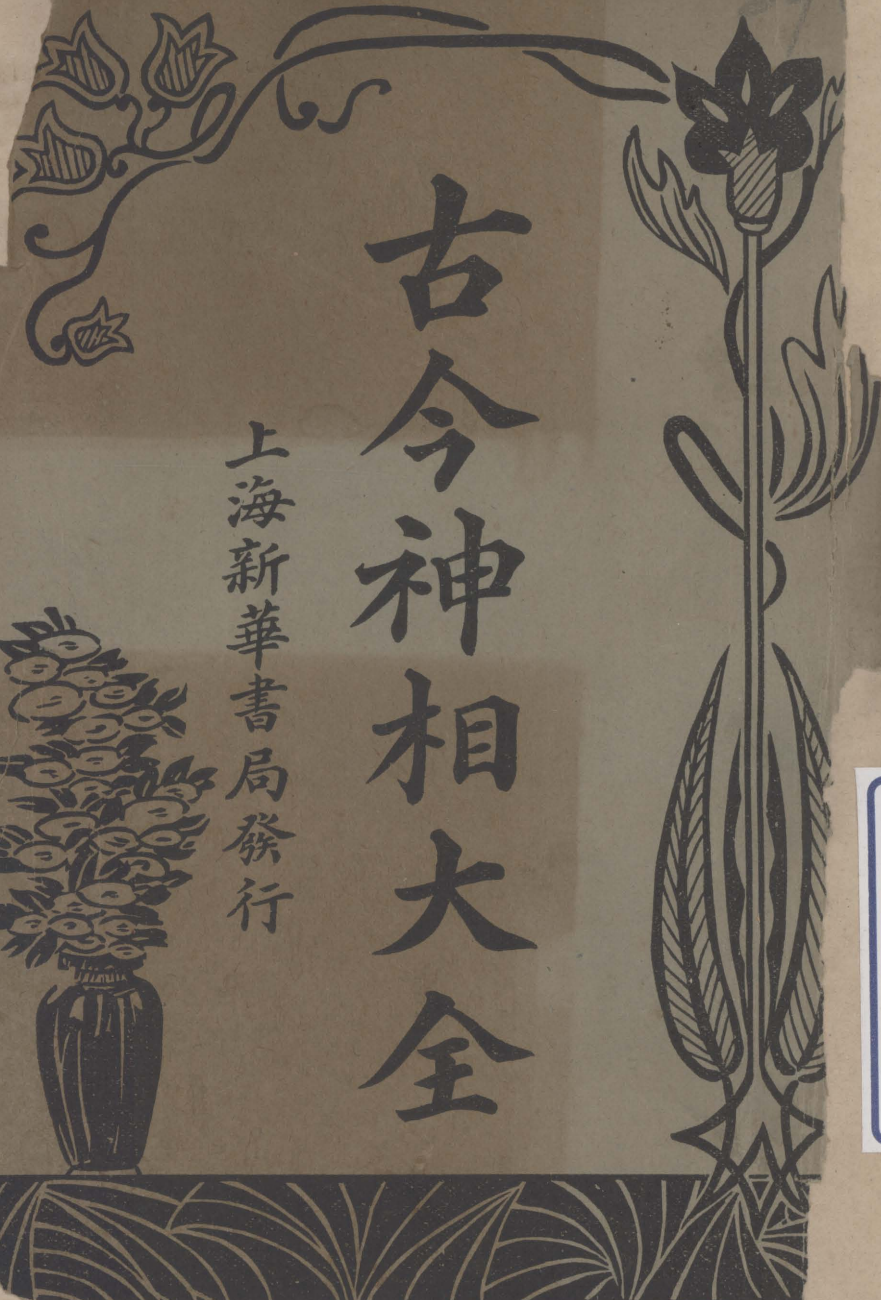 古今神相大全
上海新華書局發行